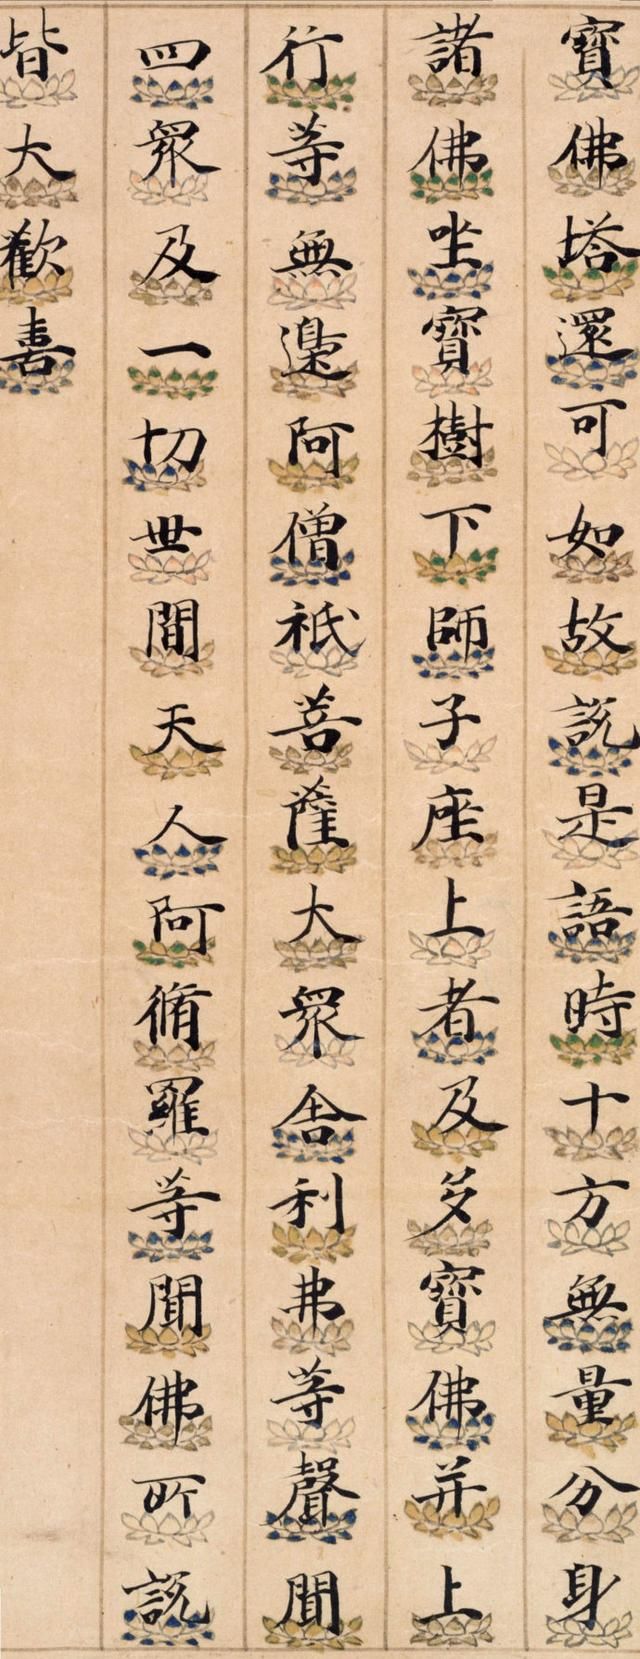 寶佛塔還可如故說是語時十方無量分身
諸佛坐寶樹下師子座上者及多寶佛并上
行等無邊阿僧祇菩薩大衆舍利弗等聲聞
四衆及一切世間天人阿脩羅等聞佛所說
皆大歡喜